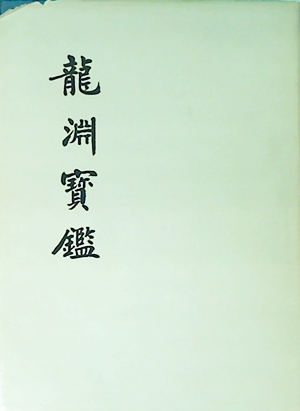 龍淵寶鑑